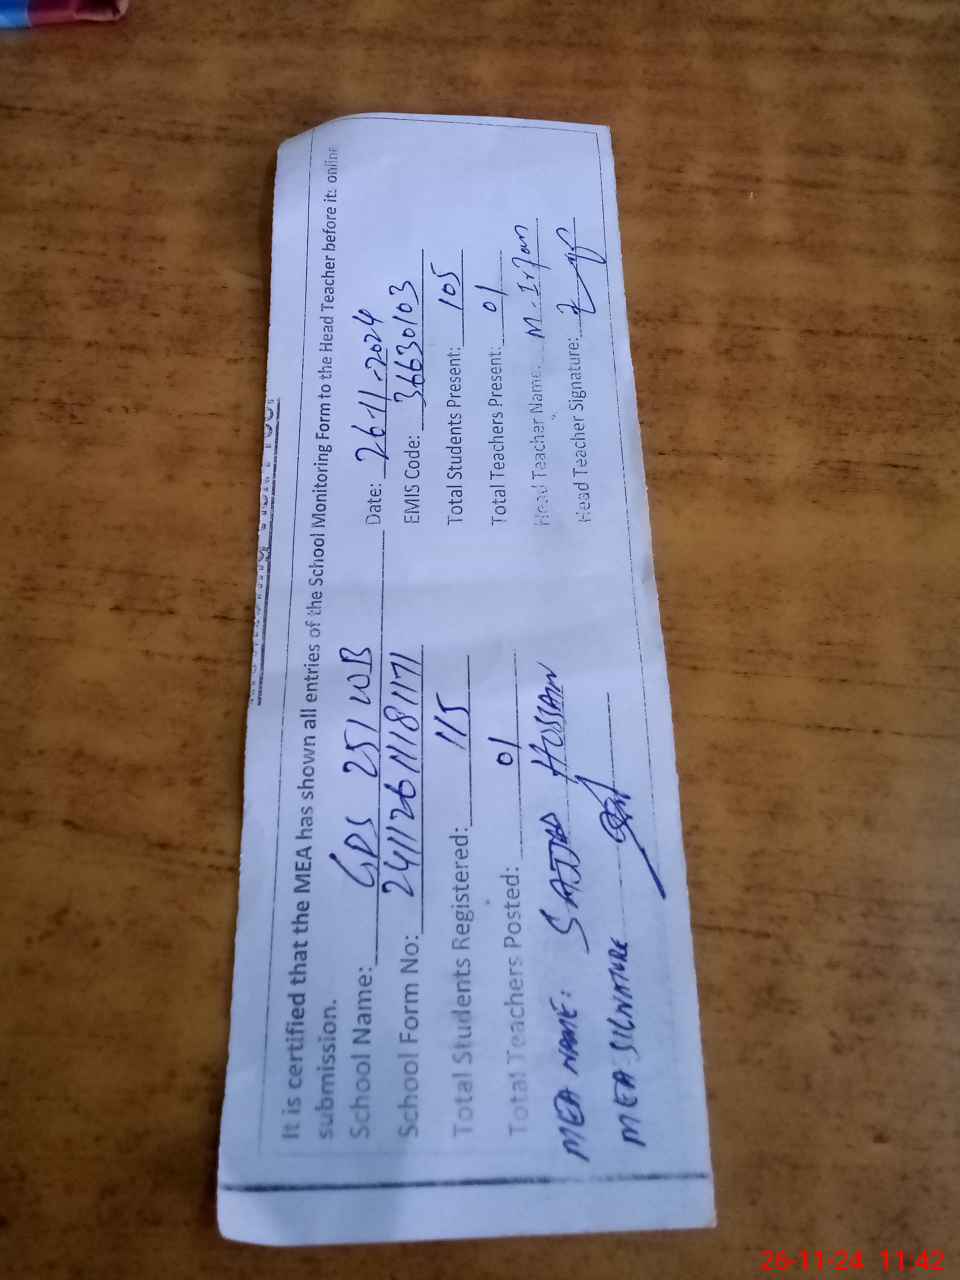 It is certified that the MEA has shown all entries of the School Monitoring Form to the Head Teacher before its online
submission.
School Name: GPS 251 WB Date: 26-11-2024
School Form No: 241126111811171 EMIS Code: 36630103
Total Students Registered: 115 Total Students Present: 105
Total Teachers Posted: 01 Total Teachers Present: 01
MEA NAME: SAJJAD HUSSAIN Head Teacher Name: M-Irfan
MEA SIGNATURE Head Teacher Signature:
26-11-24 11:42